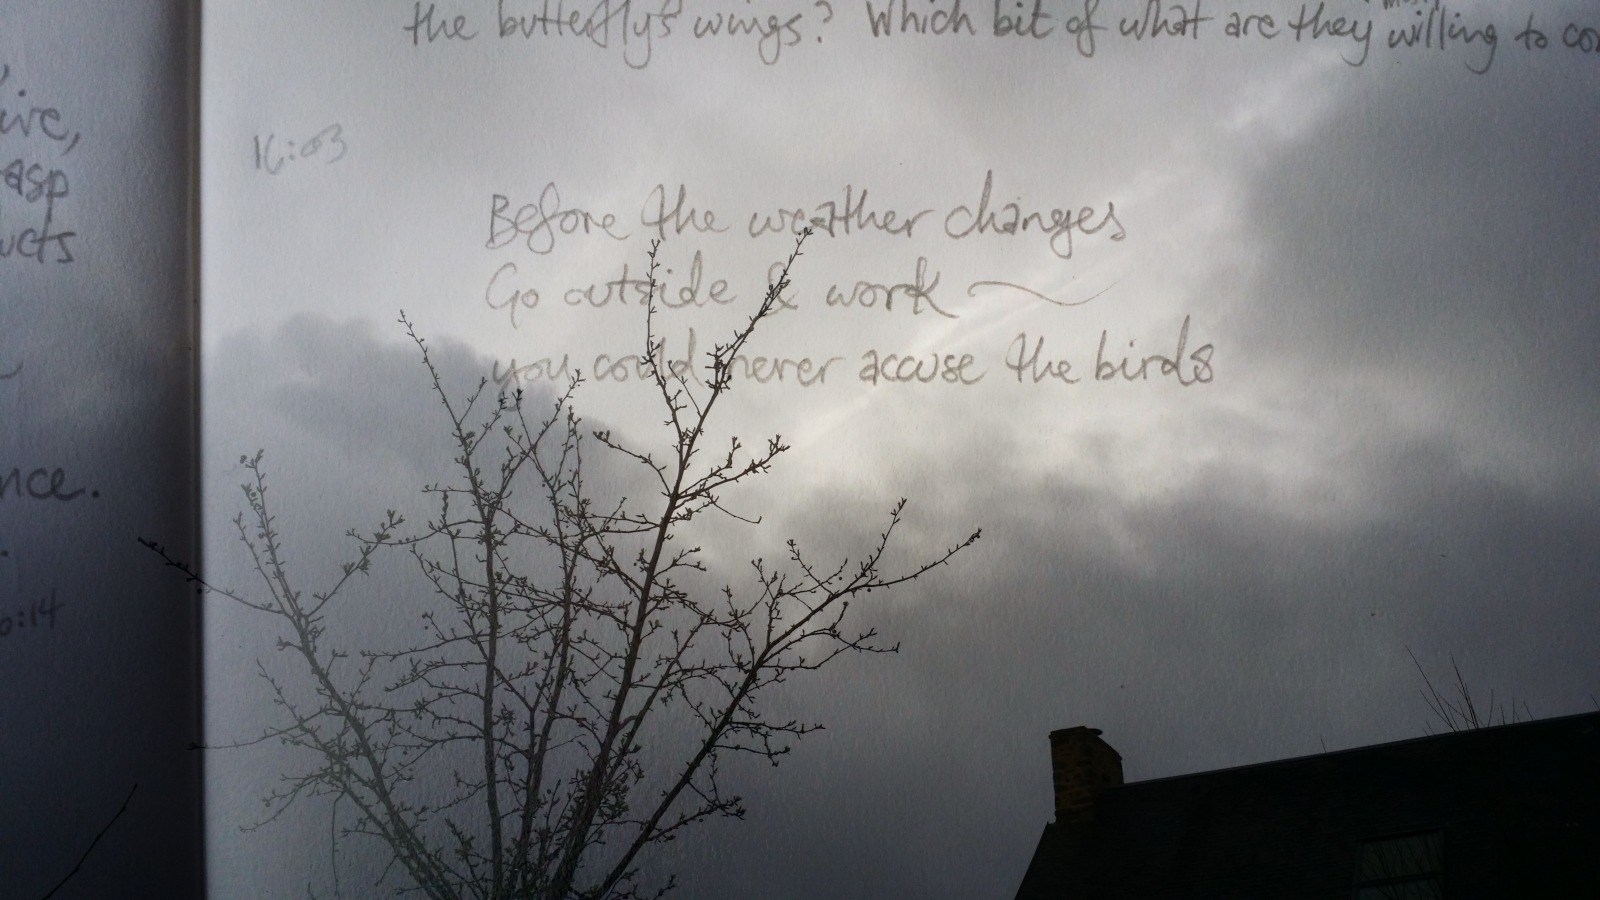 ire,
asp
ucts
nce.
0:14
the butterfly's wings? Which bit of what are they willing to co
16:03
Before the weather changes
Go outside & work ~
you could never accuse the birds